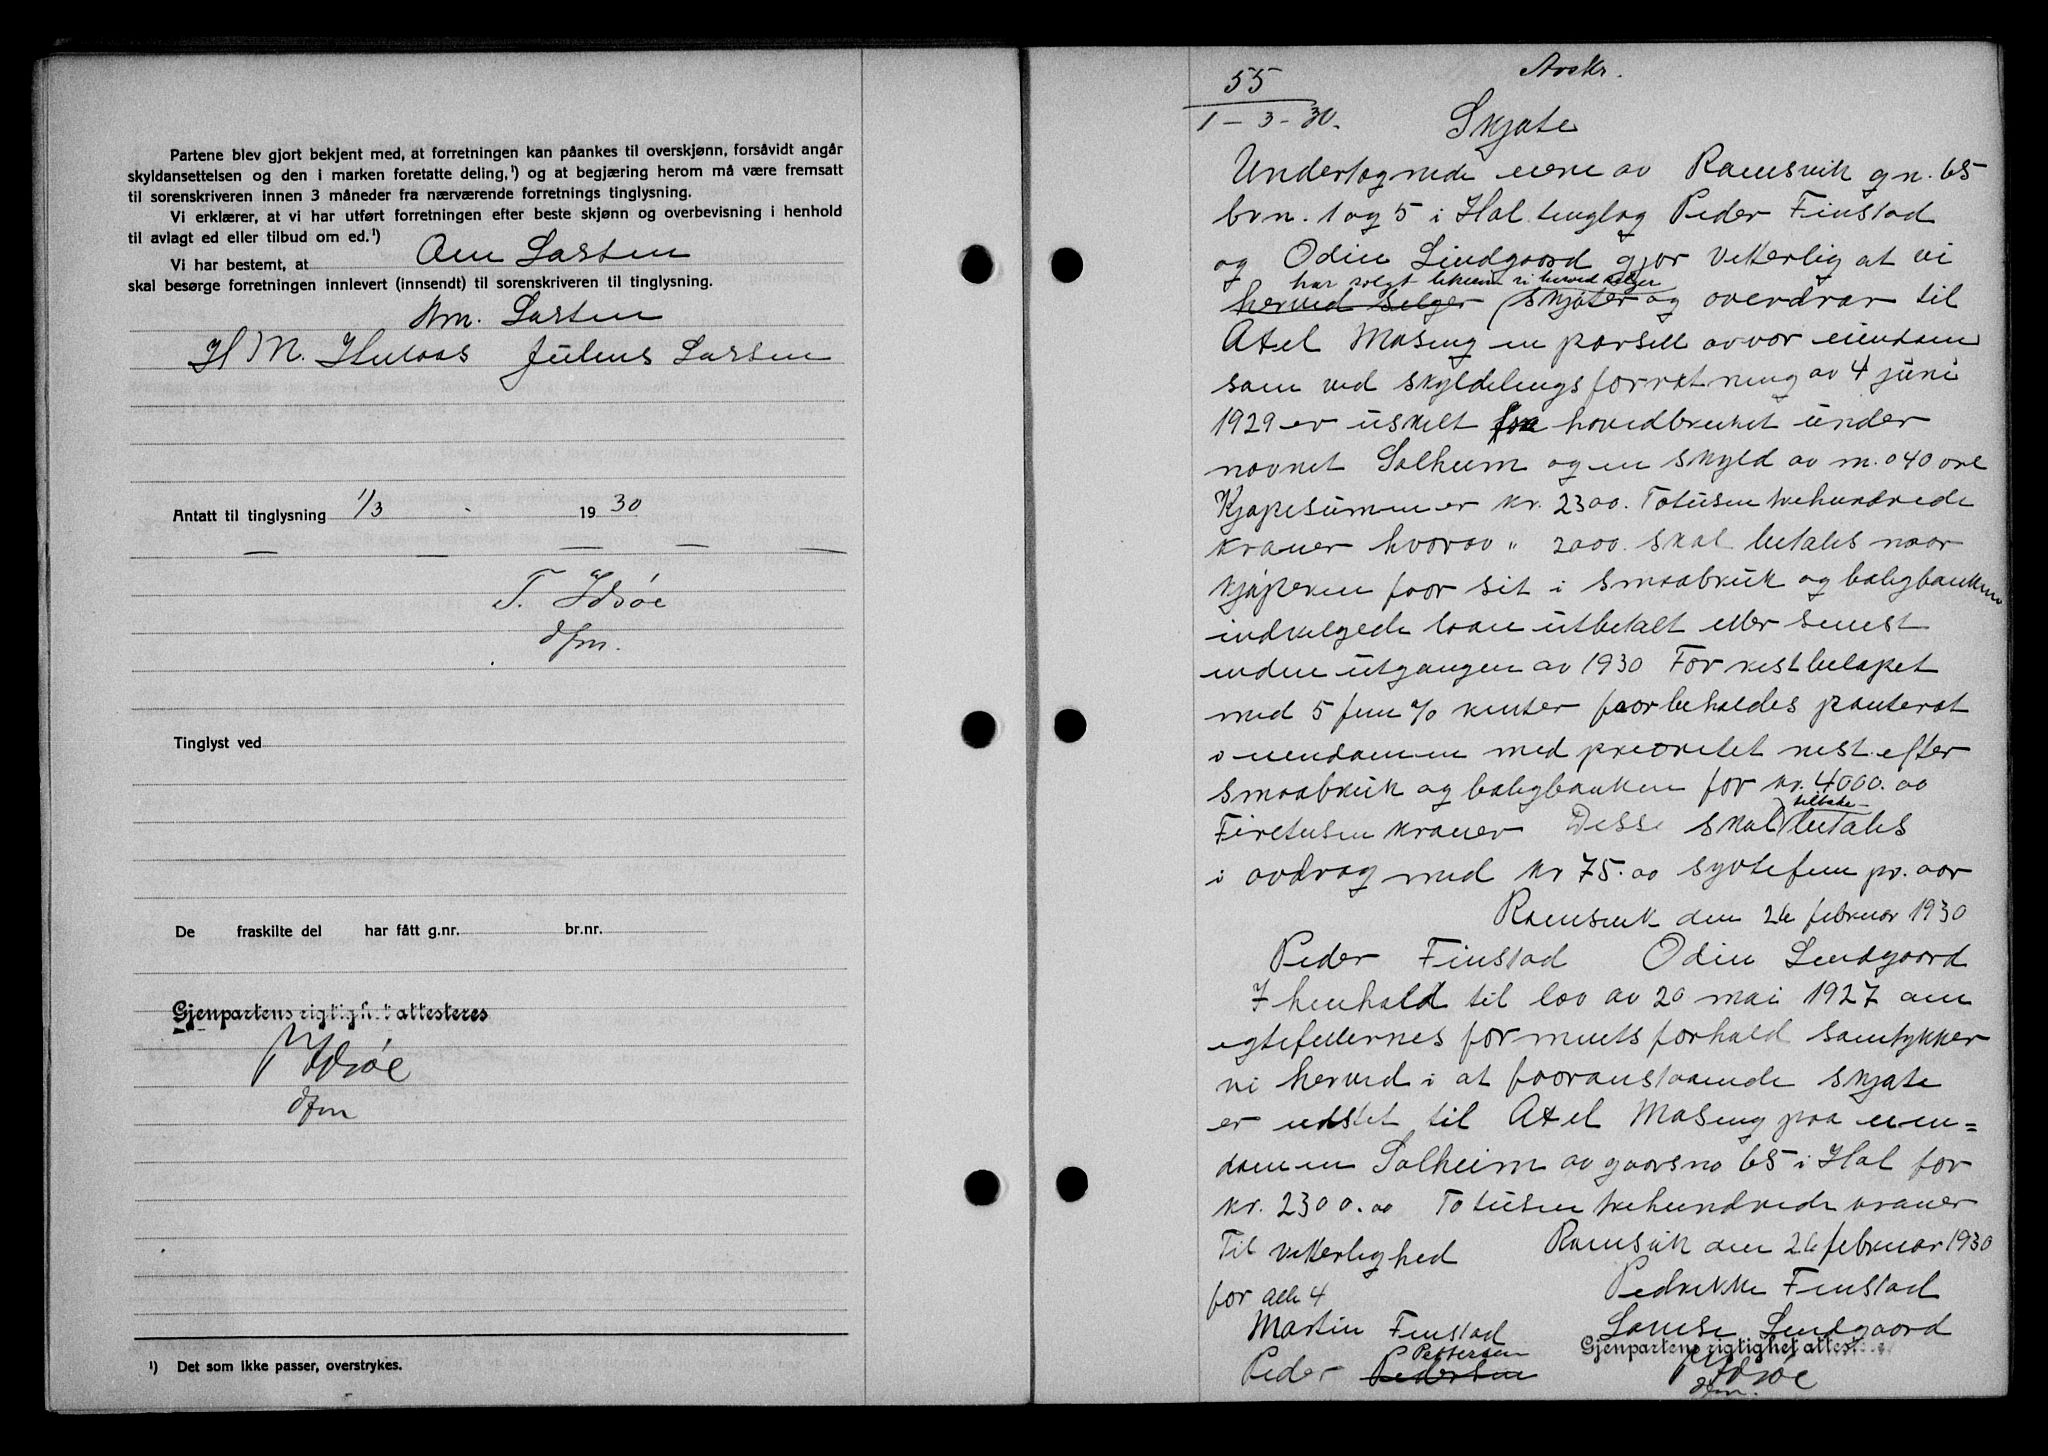 Partene blev gjort bekjent med, at forretningen kan påankes til overskjønn, forsåvidt angår
skyldansettelsen og den i marken foretatte deling,¹) og at begjæring herom må være fremsatt
til sorenskriveren innen 3 måneder fra nærværende forretnings tinglysning.
Vi erklærer, at vi har utført forretningen efter beste skjønn og overbevisning i henhold
til avlagt ed eller tilbud om ed.¹)
Vi har bestemt, at Ole Larsen
skal besørge forretningen innlevert (innsendt) til sorenskriveren til tinglysning.
Larsen
H M. Hulaas Julius Larsen
Antatt til tinglysning 1/3 1930
T. Idsøe
dfm.
Tinglyst ved
De fraskilte del har fått g.nr. br.nr.
Gjenpartens rigtighet attesteres
T Idsøe
dfm
¹) Det som ikke passer, overstrykes.
Avskr.
55
1-3-30.
Skjøte
Undertegnede eiere av Ramsvik gn. 65
brn. 1 og 5 i Hol tinglag Peder Finstad
og Odin Lindgaard gjør vitterlig at vi
har solgt likesom vi herved selger
herved selger skjøter og overdrar til
Axel Masing en parsell av vor eiendom
som ved skyldelingsforretning av 4 juni
1929 er uskelt fra hovedbruket under
navnet Solheim og en skyld av m. 040 øre
Kjøpesummen er kr. 2300. Totusen trehundrede
kroner hvorav " 2000. skal betales naar
kjøperen faar sit i smaabruk og boligbanken
indvilgede laan utbetalt eller senest
inden utgangen av 1930 For restbeløpet
med 5 fem % renter forbeholdes panterat
i eiendommen med prioritet nest efter
smaabruk og boligbanken for kr. 4000.00
tilbake-
Firetusen kroner Disse skal betales
i avdrag med kr 75.00 syvtifem pr. aar
Ramsvik den 26 februar 1930
Peder Finstad Odin Lindgaard
I henhold til lov av 20 mai 1927 om
egtefellernes formuesforhold samtykker
vi herved i at foranstaaende skjøte
er udstet til Axel Masing paa eien=
dommen Solheim av gaarsno 65 i Hol for
kr. 2300.00 Totusen trehundrede kroner
Til vitterlighed Ramsvik den 26 februar 1930
for alle 4 Pedrikke Finstad
Martin Finstad Lovise Lindgaard
Pettersen Gjenpartens rigtighet attest
Peder Pedersen T Idsøe
dfm.